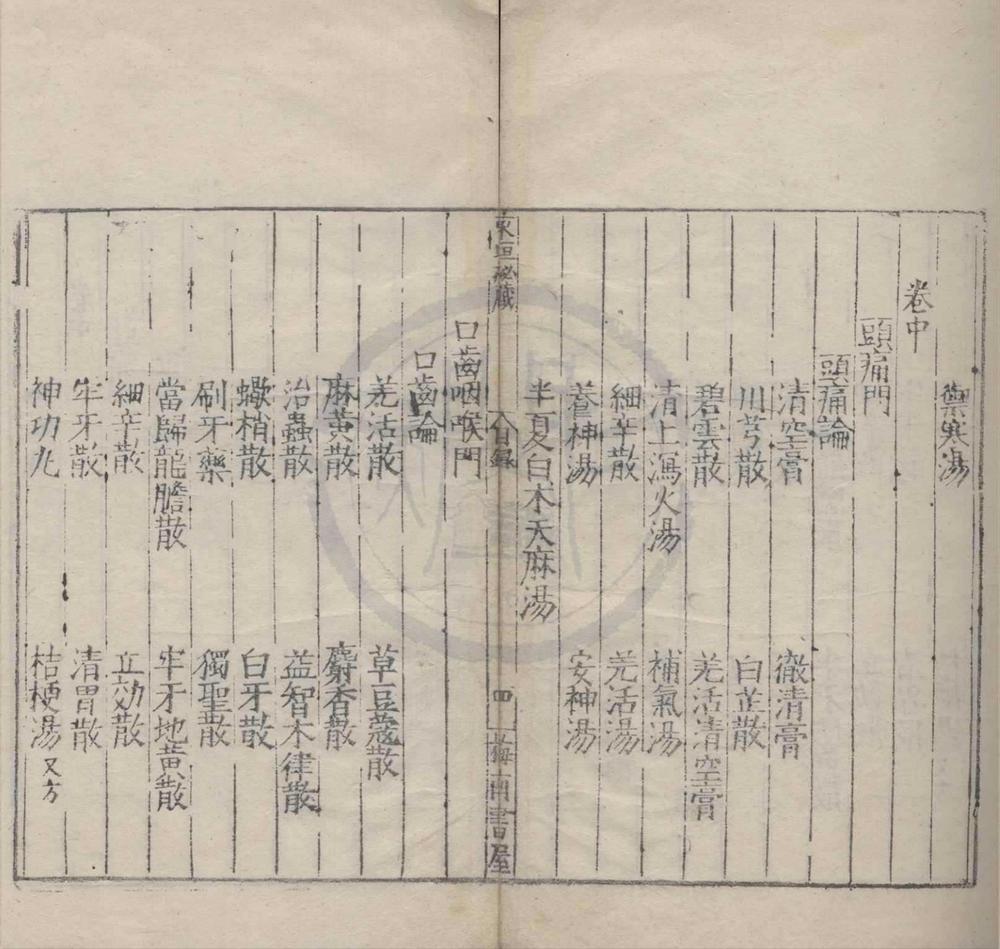 禦寒湯
卷中
頭痛門
頭痛論
清空膏　徹清膏
川芎散　白芷散
碧雲散　羌活清空膏
清上瀉火湯　補氣湯
細辛散　羌活湯
養神湯　安神湯
半夏白朮天麻湯
東垣秘藏　目録　四　梅南書屋
口齒咽喉門
口齒論
羌活散　草豆蔻散
麻黃散　麝香散
治蟲散　益智木律散
蠍梢散　白牙散
刷牙藥　獨聖散
當歸龍膽散　牢牙地黃散
細辛散　立効散
牢牙散　清胃散
神功丸　桔梗湯又方